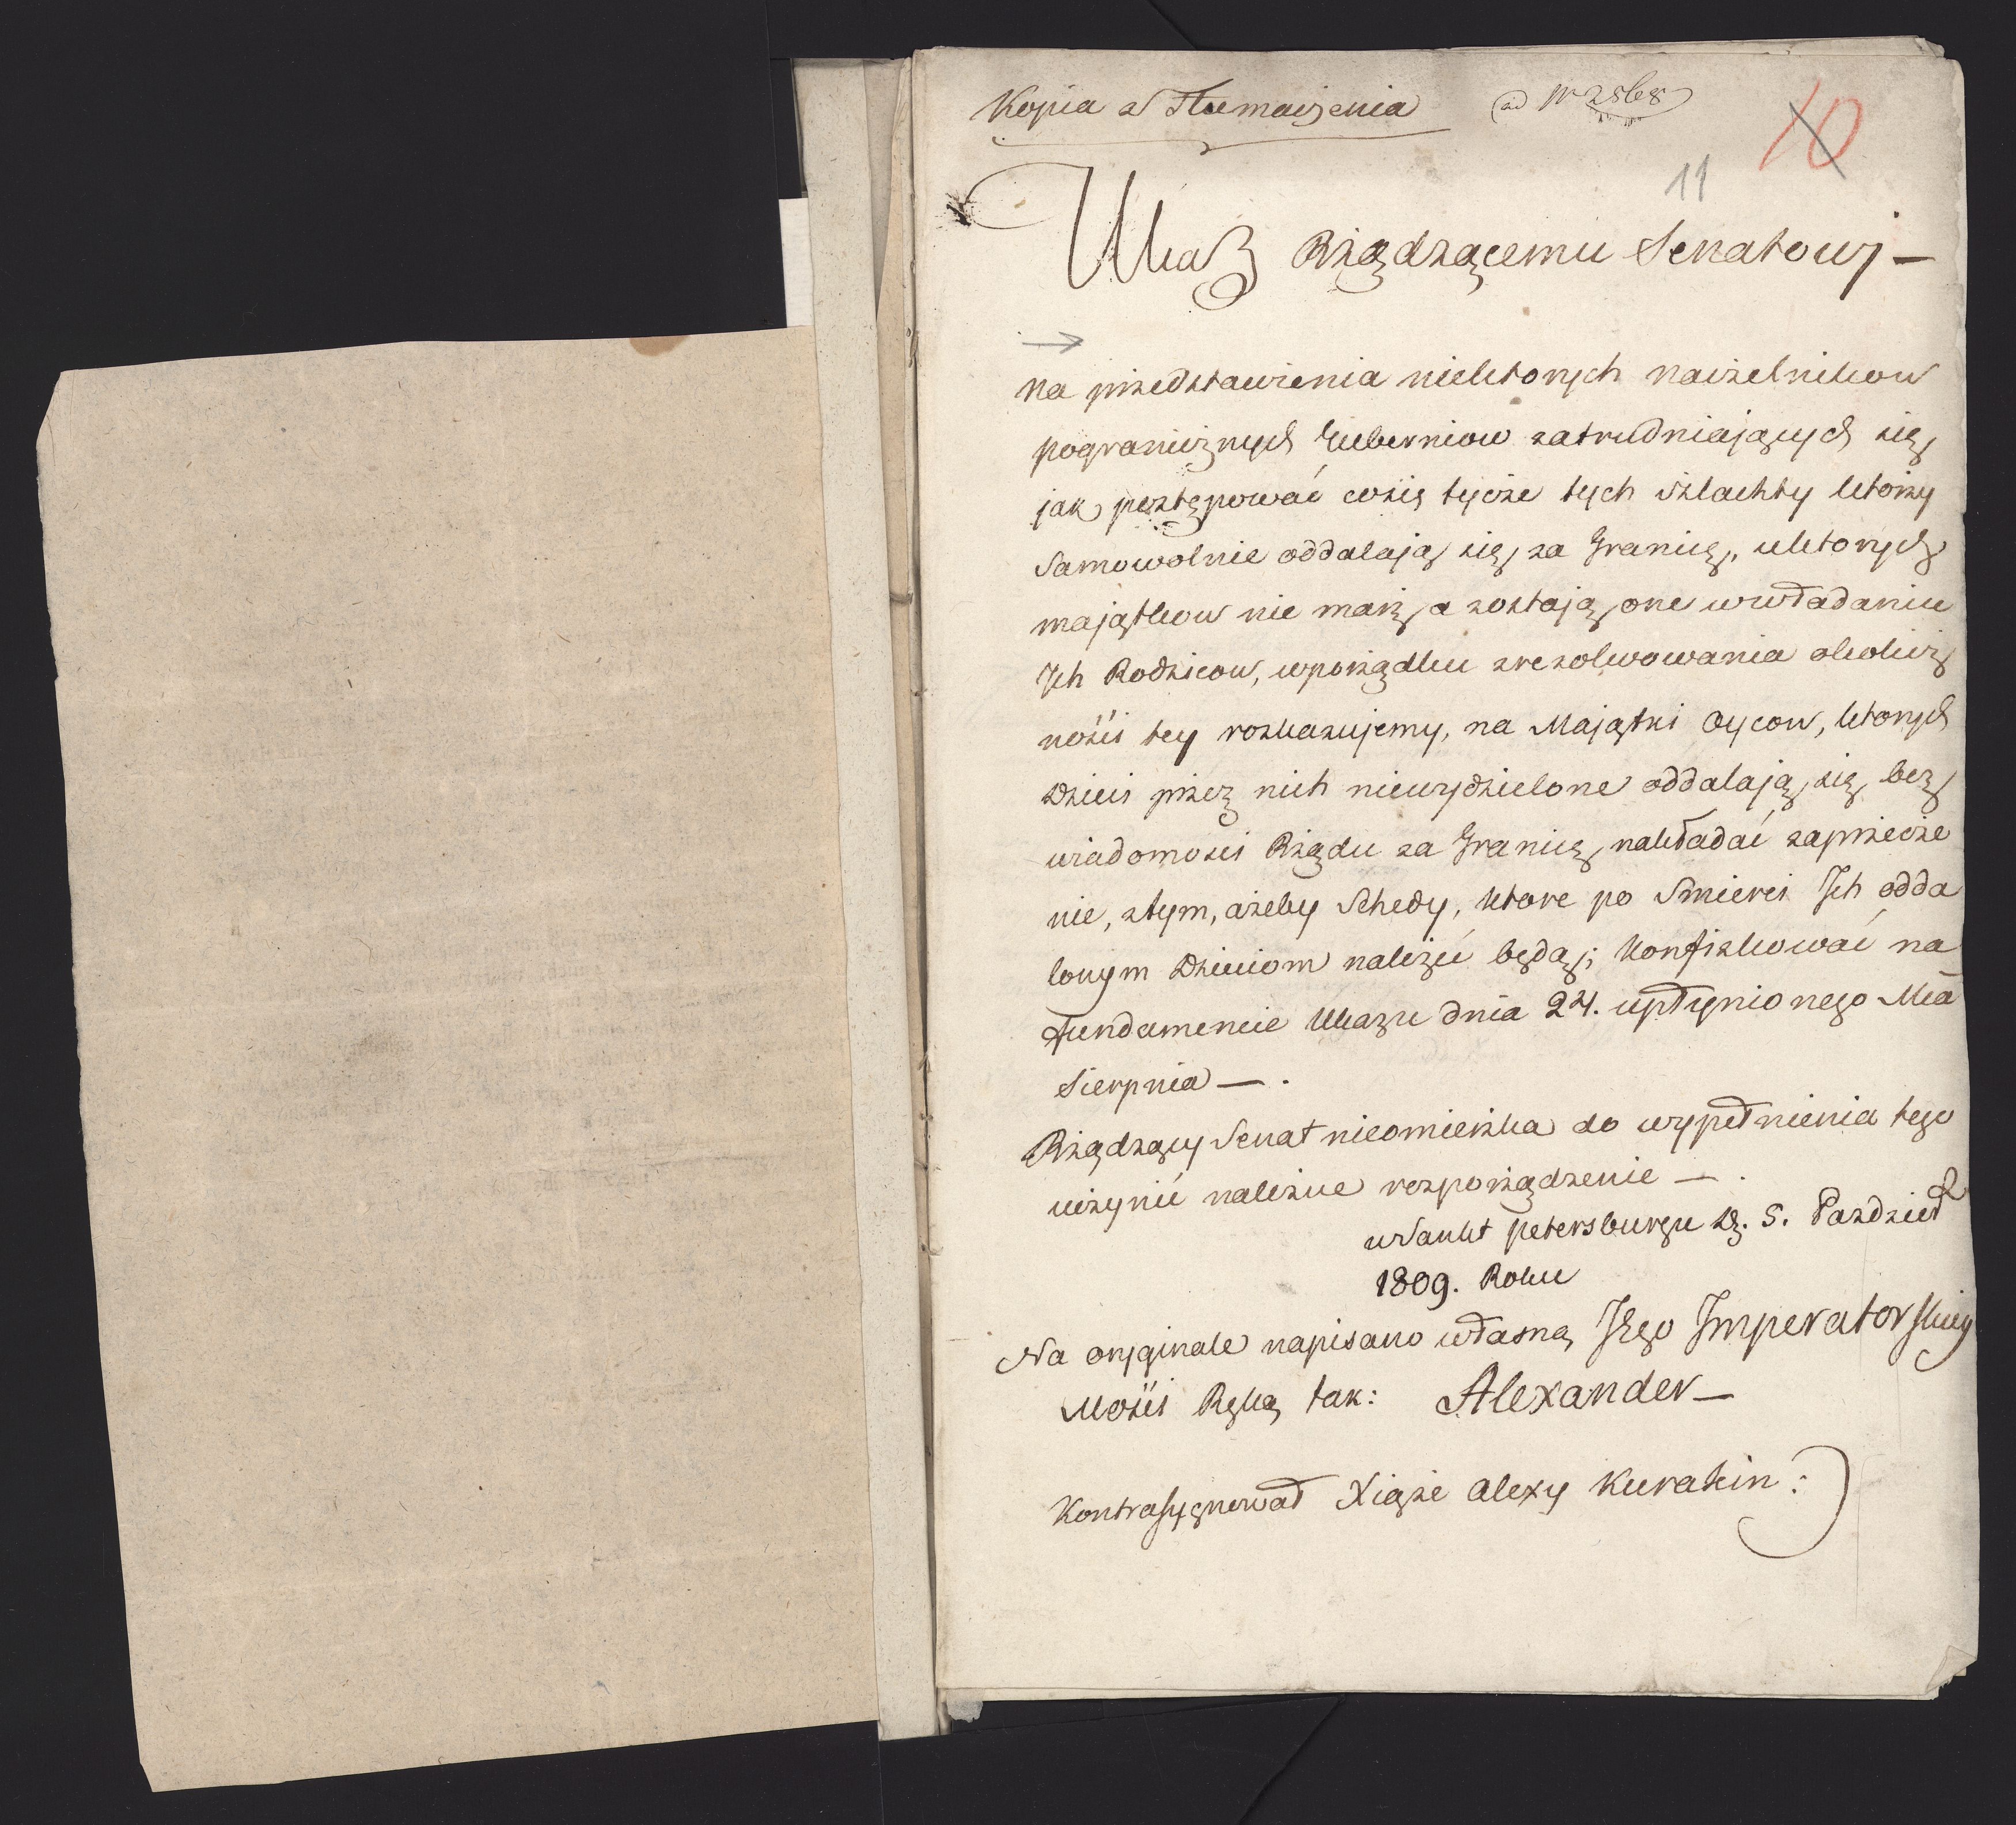 Kopia z Tłumaczenia ad Nr 2868
10
11
Ukaz Rządzącemu Senatowi —
na przedstawienia niektorych naczelnikow
pogranicznych Guberniow zatrudniających się,
jak postępować cosię tycze tych szlachty ktorzy
Samowolnie oddalają się za Granicę, uktorych
majątkow nie masz, a zostają one wwładaniu
Ich Rodzicow, wporządku zrezolwowania okolicz
nosci tey rozkazujemy, na Majątki Oycow, ktorych
Dzieci przez nich niewydzielone oddalają się bez
wiadomosci Rządu za Granicę, nakładać zaprzecze
nie, ztym, ażeby Schedy, ktore po Smierci Ich odda
lonym Dzieciom należeć będą; Konfiskować na
fundamencie Ukazu dnia 24. upłynionego Mca
Sierpnia — .
Rządzący Senat nieomieszka do wypełnienia tego
uczynić należne rozporządzenie — .
w Sankt petersburgu D. 5. Pazdzier
1809. Roku
Na oryginale napisano własną Jego Imperatorskiey
Mosci Ręką tak: Alexander —
Kontrasygnował Xiąże Alexy Kurakin: